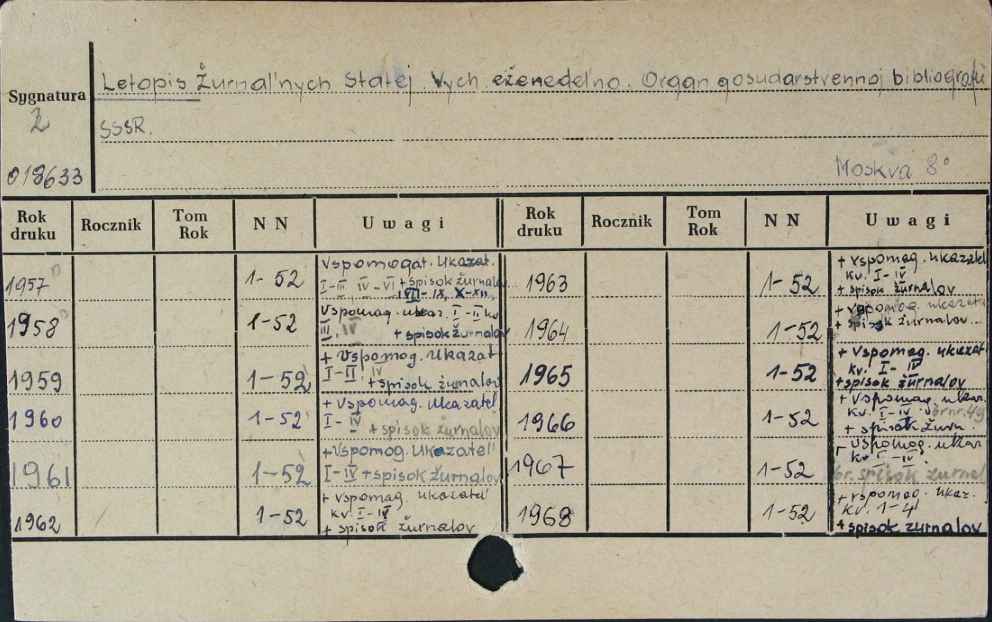 Letopis Žurnal'nych Statej. Vych. eženedel'no. Organ gosudarstvennoj bibliografii
Sygnatura
SSSR.
018633
Moskva 8°
Rok druku Rocznik Tom Rok N N Uwagi Rok druku Rocznik Tom Rok N N Uwagi
1957 1-52 Vspomogat. Ukazat.
I-III IV-VI + spisok žurnalov
VII-IX, X-XII
1958 1-52 Vspomag. ukaz. I-II kv
III. IV + spisok žurnalov
1959 1-52 + Vspomog. Ukazat
I-II IV
+ spisok žurnalov
1960 1-52 + Vspomag. Ukazatel'
I-IV + spisok žurnalov
1961 1-52 + Vspomog. Ukazatel'
I-IV + spisok žurnalov
1962 1-52 + vspomag. ukazatel'
kv. I-IV
+ spisok žurnalov
1963 1-52 + vspomag. ukazatel'
kv. I-IV
+ spisok žurnalov
1964 1-52 + vspomog. ukazat
+ spisok žurnalov
1965 1-52 + vspomag. ukazat
kv. I-IV
+ spisok žurnalov
1966 1-52 + vspomag. ukaz.
kv. I-IV
+ spisok žurn.
1967 1-52 vspomog. ukaz
kv I-IV
br. spisok žurnal
1968 1-52 + vspomag. ukaz.
kv. 1-4
+ spisok žurnalov